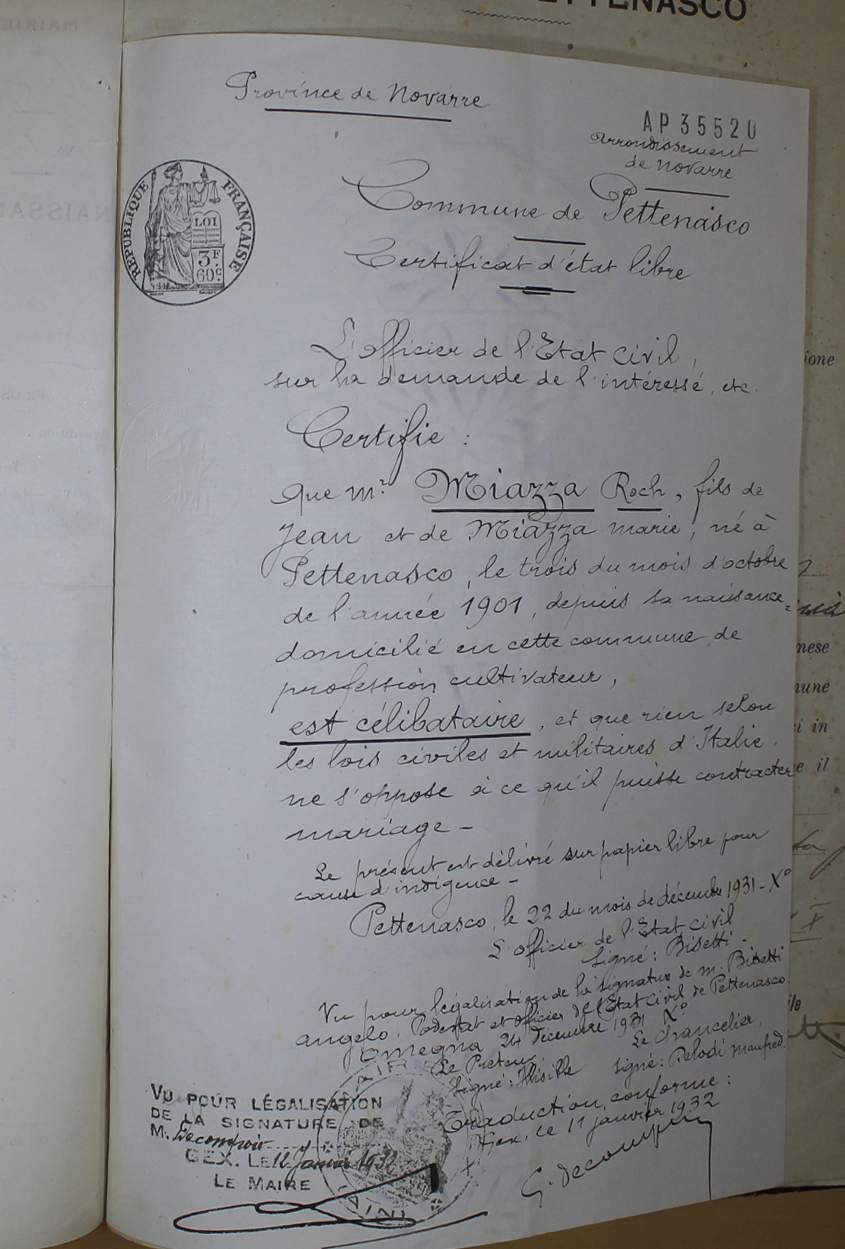 TTENASCO
Province de Novarre
AP 35520
Arrondissement
de Novarre
RÉPUBLIQUE FRANÇAISE
LOI
3F
60c
Commune de Pettenasco
Certificat d'état libre
L'officier de l'Etat civil,
sur la demande de l'intéressé, etc.
Certifie :
que Mr. Miazza Roch, fils de
Jean et de Miazza Marie, né à
Pettenasco, le trois du mois d'octobre
de l'année 1901, depuis sa naissance,
domicilié en cette commune, de
profession cultivateur,
est célibataire, et que rien selon
les lois civiles et militaires d'Italie
ne s'oppose à ce qu'il puisse contracter
mariage -
Le présent est délivré sur papier libre pour
cause d'indigence -
Pettenasco, le 22 du mois de décembre 1931 - X°
L'officier de l'Etat civil
Signé : Bisetti -
Vu pour légalisation de la signature de M. Bisetti
Angelo, Podestat et officier de l'Etat civil de Pettenasco
Omegna 24 décembre 1931 X°
Le Preteur, Le Chancelier,
Signé : Signé :
Traduction conforme :
Gex, le 11 janvier 1932
VU POUR LÉGALISATION
DE LA SIGNATURE DE
M.
GEX, LE 11 janvier 1932
LE MAIRE
AIN
ione
nese
une
i in
e il